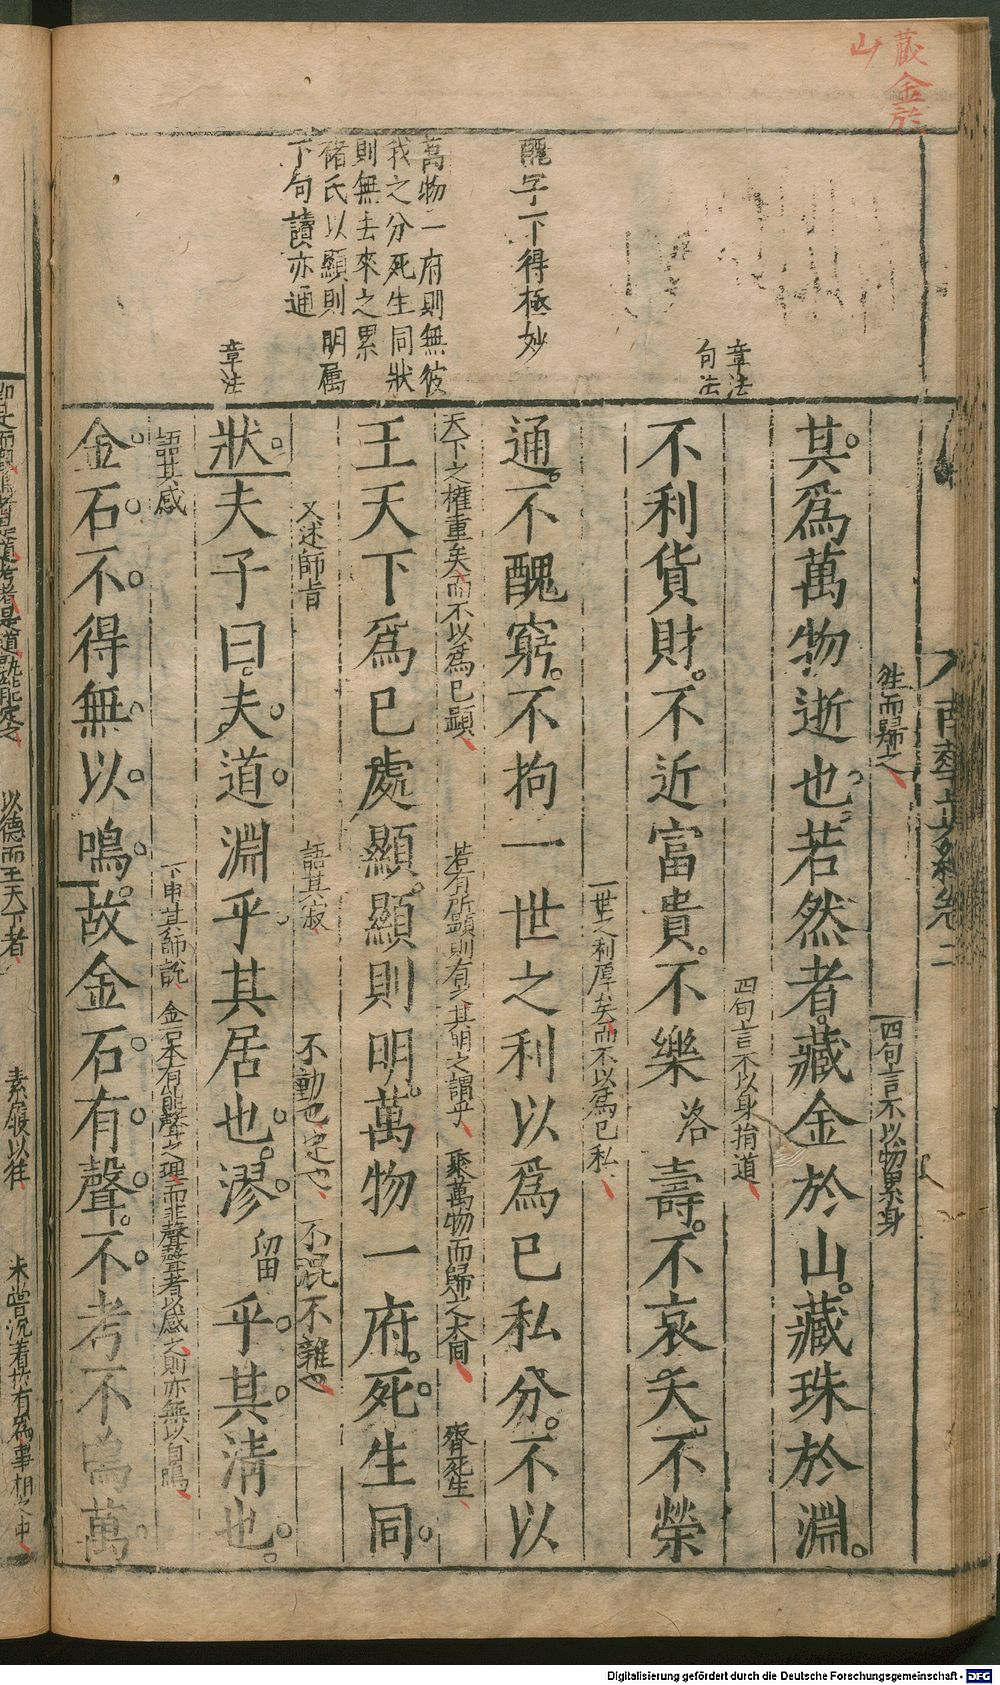 藏金於
山
章法
句法
醜字下得極妙
萬物一府則無彼
我之分死生同狀
則無去來之累
儲氏以顯則明属
下句讀亦通
章法
南華真經卷二
往而歸之
四句言不以物累身
其爲萬物逝也若然者藏金於山藏珠於淵
四句言不以身揹道
不利貨財不近富貴不樂洛壽不哀夭不榮
一世之利厚矣而不以為已私
通不醜窮不拘一世之利以爲已私分不以
天下之權重矣而不以爲已顯
若有所顯則有之其明之謂乎
聚萬物而歸之大同
齊死生
王天下爲已處顯顯則明萬物一府死生同
又述師旨
語其寂
不動也定也
不混不雜也
狀夫子曰夫道淵乎其居也漻留乎其清也
語其感
下申其師說
金石本有能聲之理而非聲聲者以感之則亦無以自鳴
金石不得無以鳴故金石有聲不考不鳴萬
以德而王天下者
素履以往
Digitalisierung gefördert durch die Deutsche Forschungsgemeinschaft - DFG